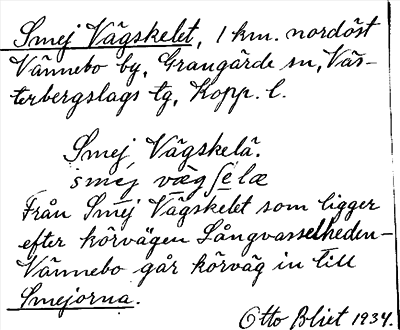 Smej Vägskelet, 1 km. nordöst
Vännebo by, Grangärde sn, Väs-
terbergslags tg, Kopp. l.
Smej Vägskelä.
smej væg ʃelæ
Från Smej Vägskelet som ligger
efter körvägen Långvasselheden-
Vännebo går körväg in till
Smejorna.
Otto Bliet 1934.